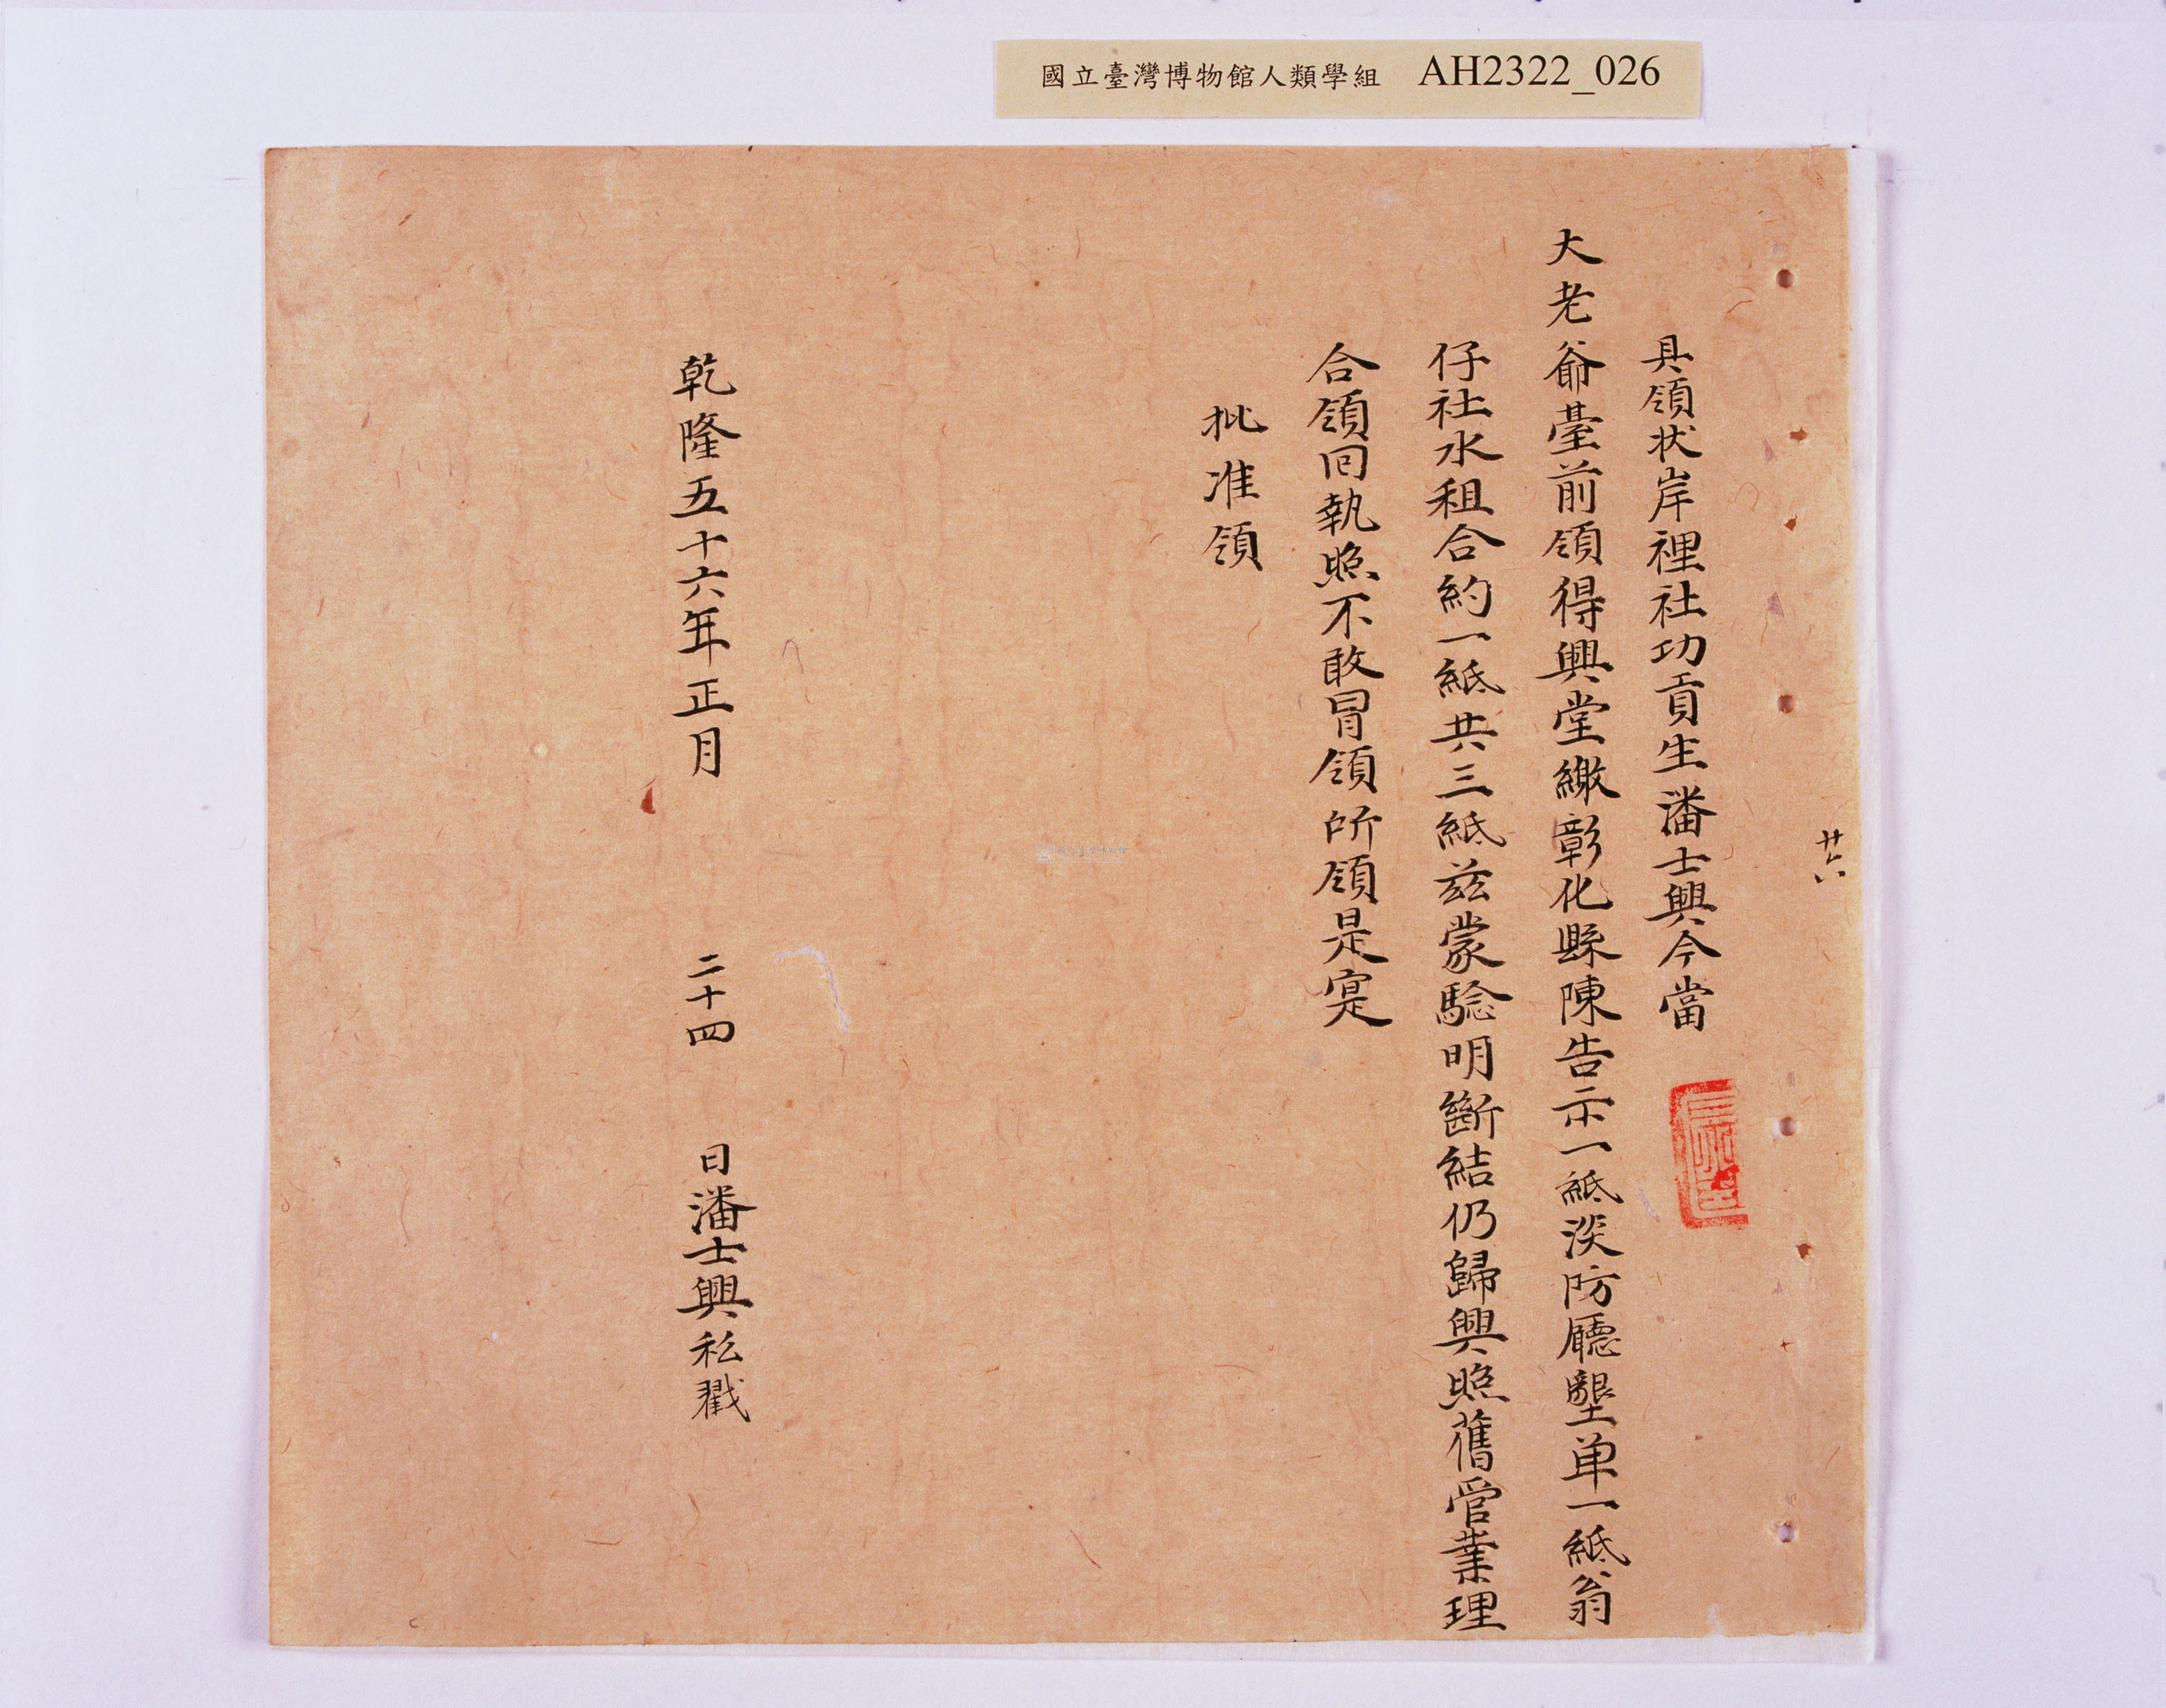 國立臺灣博物館人類學組 AH2322_026
廿六
具領状岸裡社功貢生潘士興今當
大老爺臺前領得興堂繳彰化縣陳告示一紙淡防廳墾单一紙翁
仔社水租合約一紙共三紙茲蒙驗明斷結仍歸興照舊管業理
合領回執照不敢冒領所領是寔
批准領
乾隆五十六年正月 二十四 日潘士興私戳